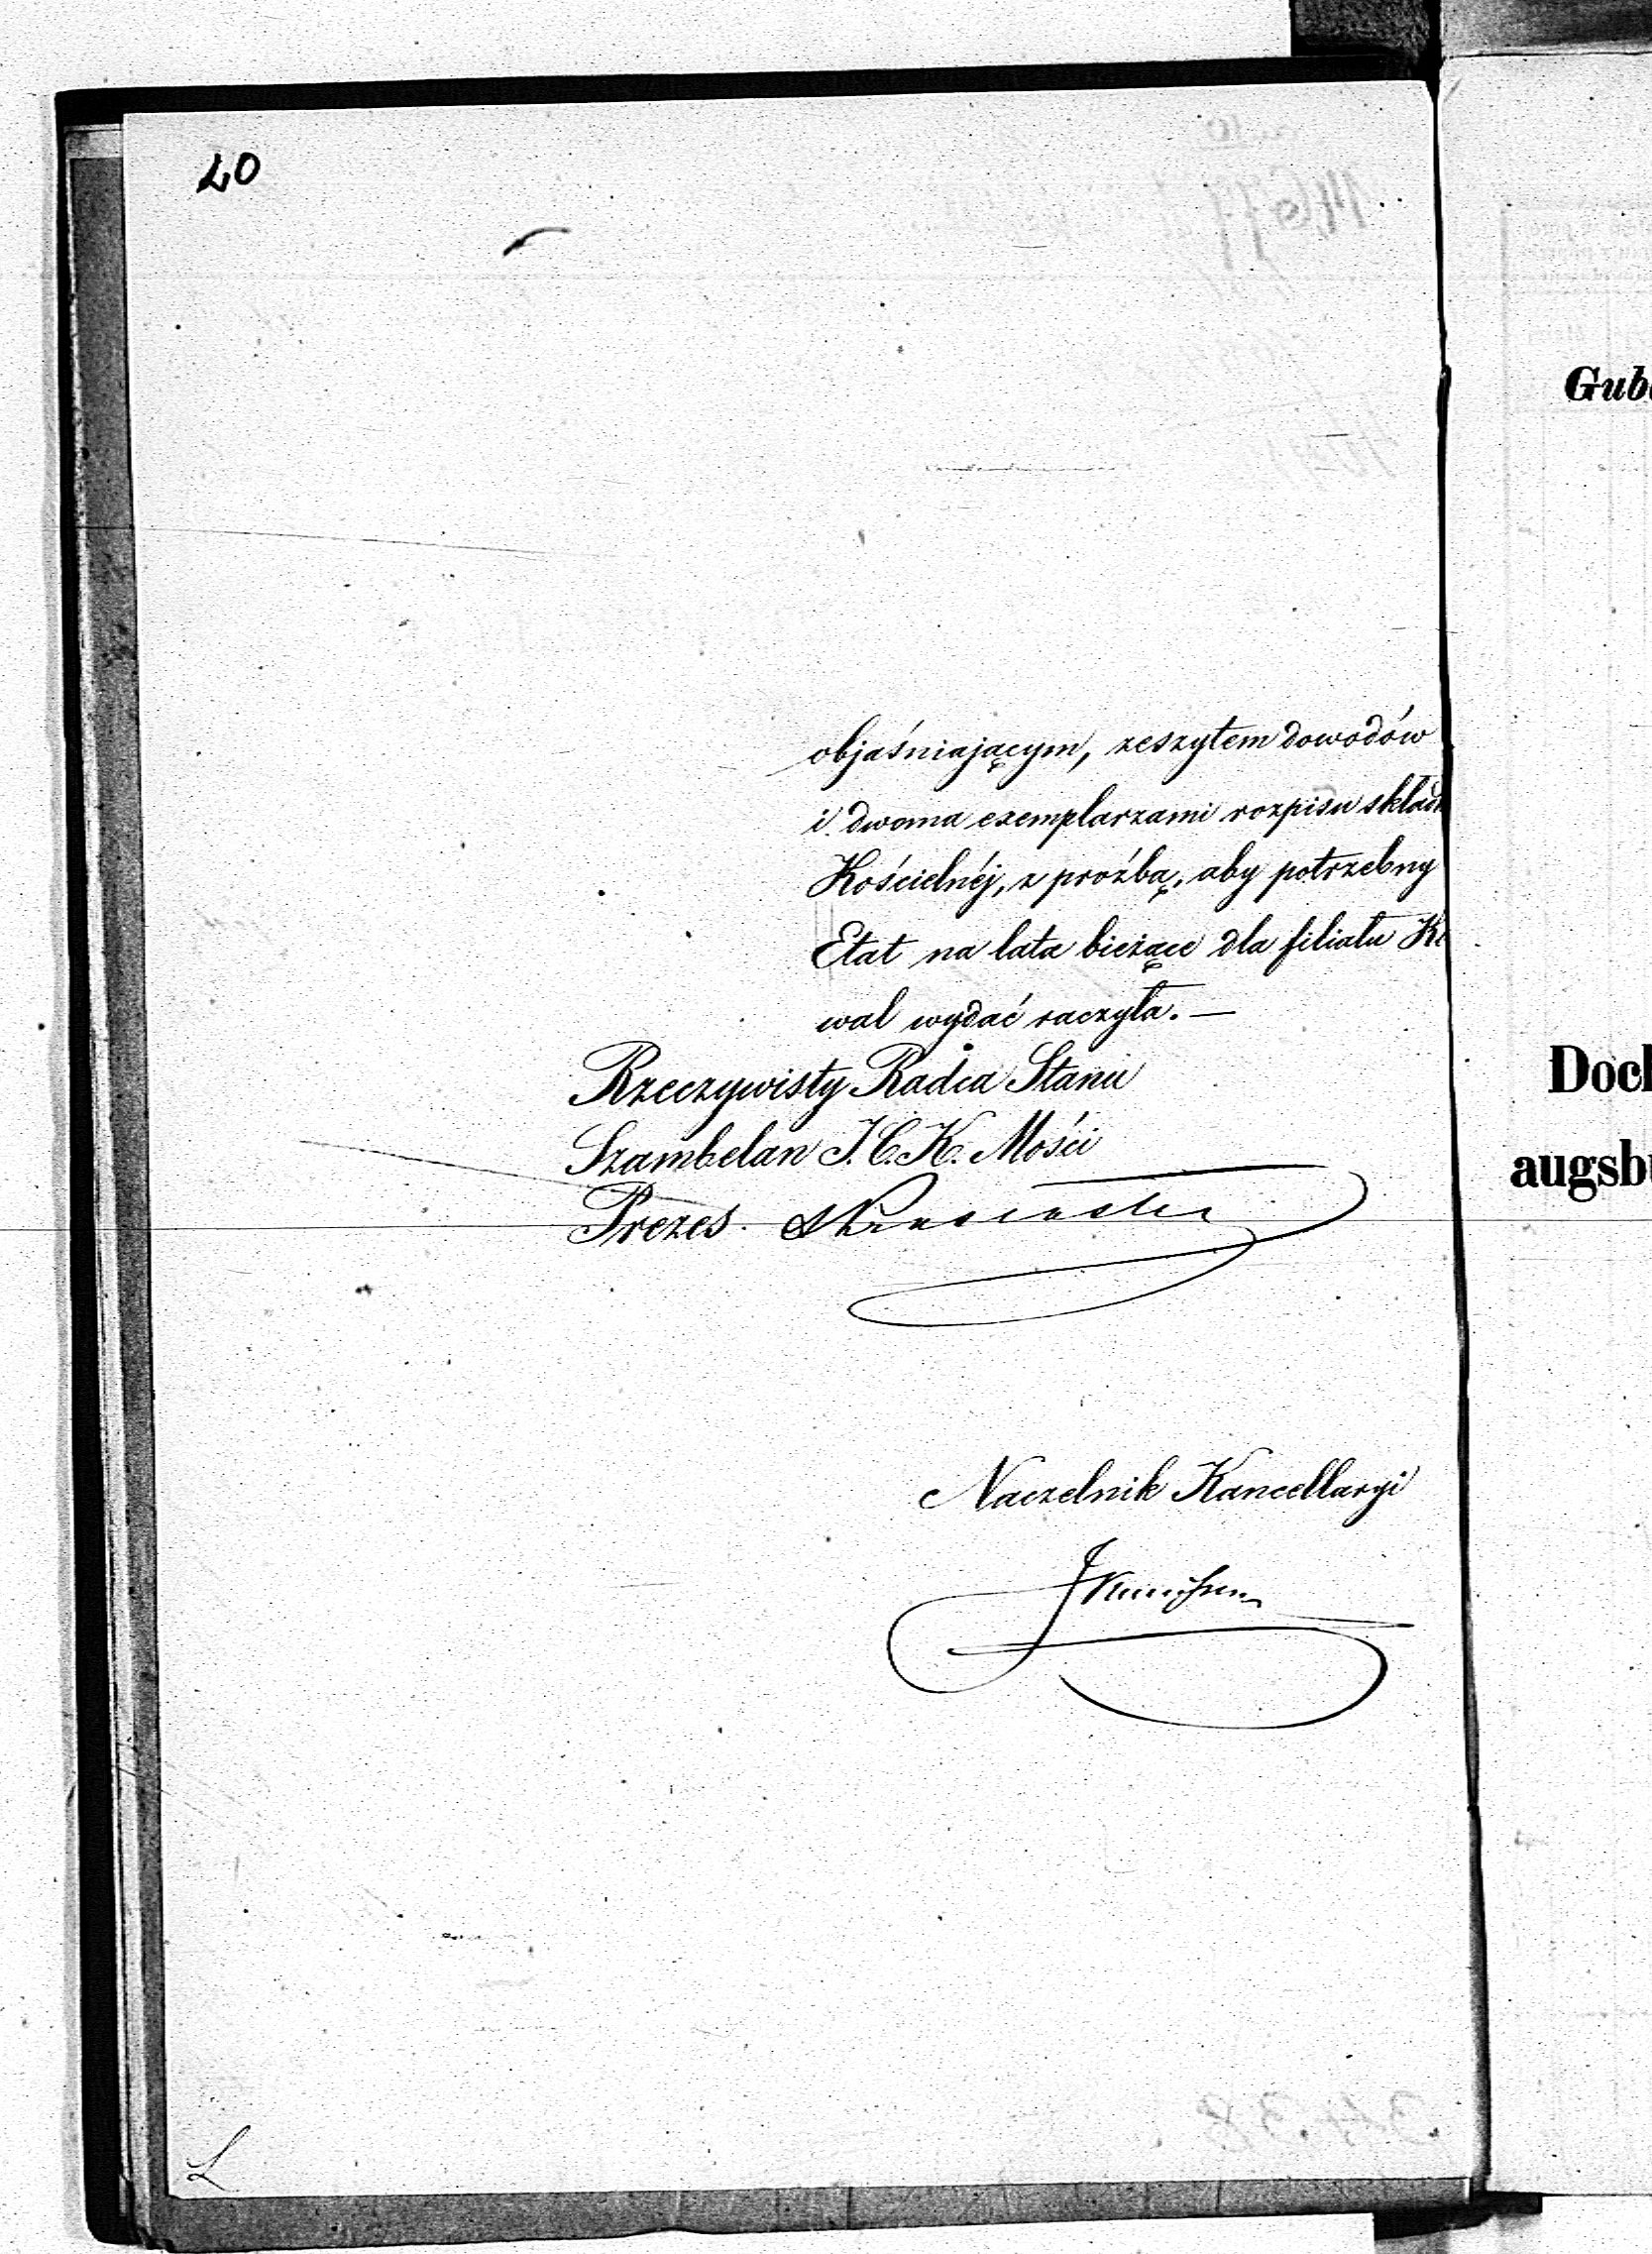 20
objaśniającym, zeszytem dowodów
i dwoma exemplarzami rozpisu składk
Kościelnéj, z prożbą, aby potrzebny
Etat na lata bieżące dla filiału Ko
wal wydać raczyła. —
Rzeczywisty Radca Stanu
Szambelan J. C. K. Mości
Prezes.
Naczelnik Kancellaryi
L
Gube
Doch
augsbu